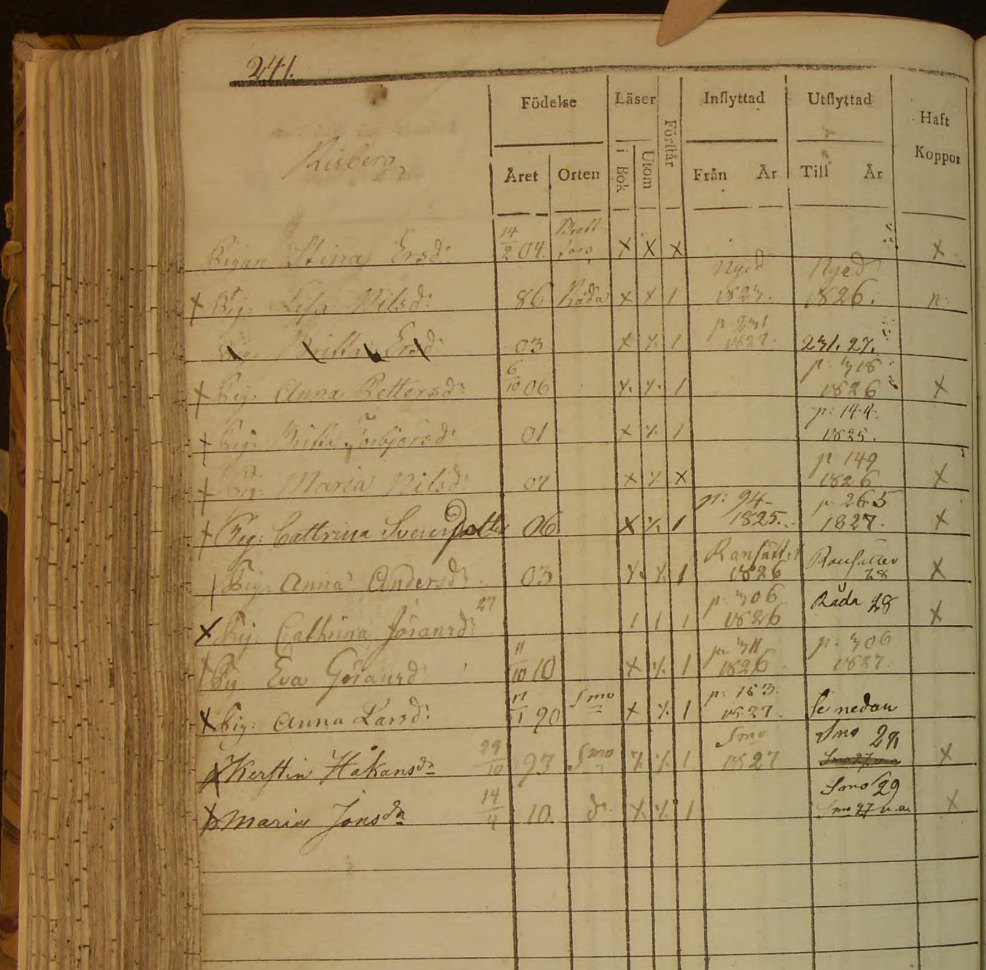 241.
Födelse Läser Förstår Inflyttad Utflyttad Haft Koppor
Risberg
Året Orten i Bok Utom Från År Till År
Pigan Stina Ersd: 14/2 04. Bratt fors x x x x
x Pig: Lisa Nilsd: 86. Råda x x 1 Nyed 1823. Nyed 1826. n.
Britta Ersd: 03 x x 1 p 231 1827. 231. 27.
x Pig: Anna Pettersd: 6/10 06 x x 1 p: 318 1826 x
x Pig: Britta Torbjörsd: 01 x x 1 p: 144. 1825.
x Pig: Maria Nilsd: 07 x x x p 149 1826 x
x Pig: Cattrina Svensdotter 06. x x 1 p: 94 1825. p 265 1827. x
Pig: Anna Andersd: 03 x x 1 Ransätter 1826 Ransätter 28 x
x Pig: Cathrina Jöransd: 27 1 1 1 p: 306 1826 Råda 28 x
Pig Eva Göransd: 11/10 10 x x 1 p: 311 1826 p: 306 1827.
x Pig: Anna Larsd: 11 90 Smo x x 1 p: 163. 1827. Se nedan
x Kerstin Håkansdr 29/10 97 Smo x x 1 Smo 1827 Smo 29 x
x Maria Jonsdr 14 10. do x x 1 Smo 29 Smo 27 x